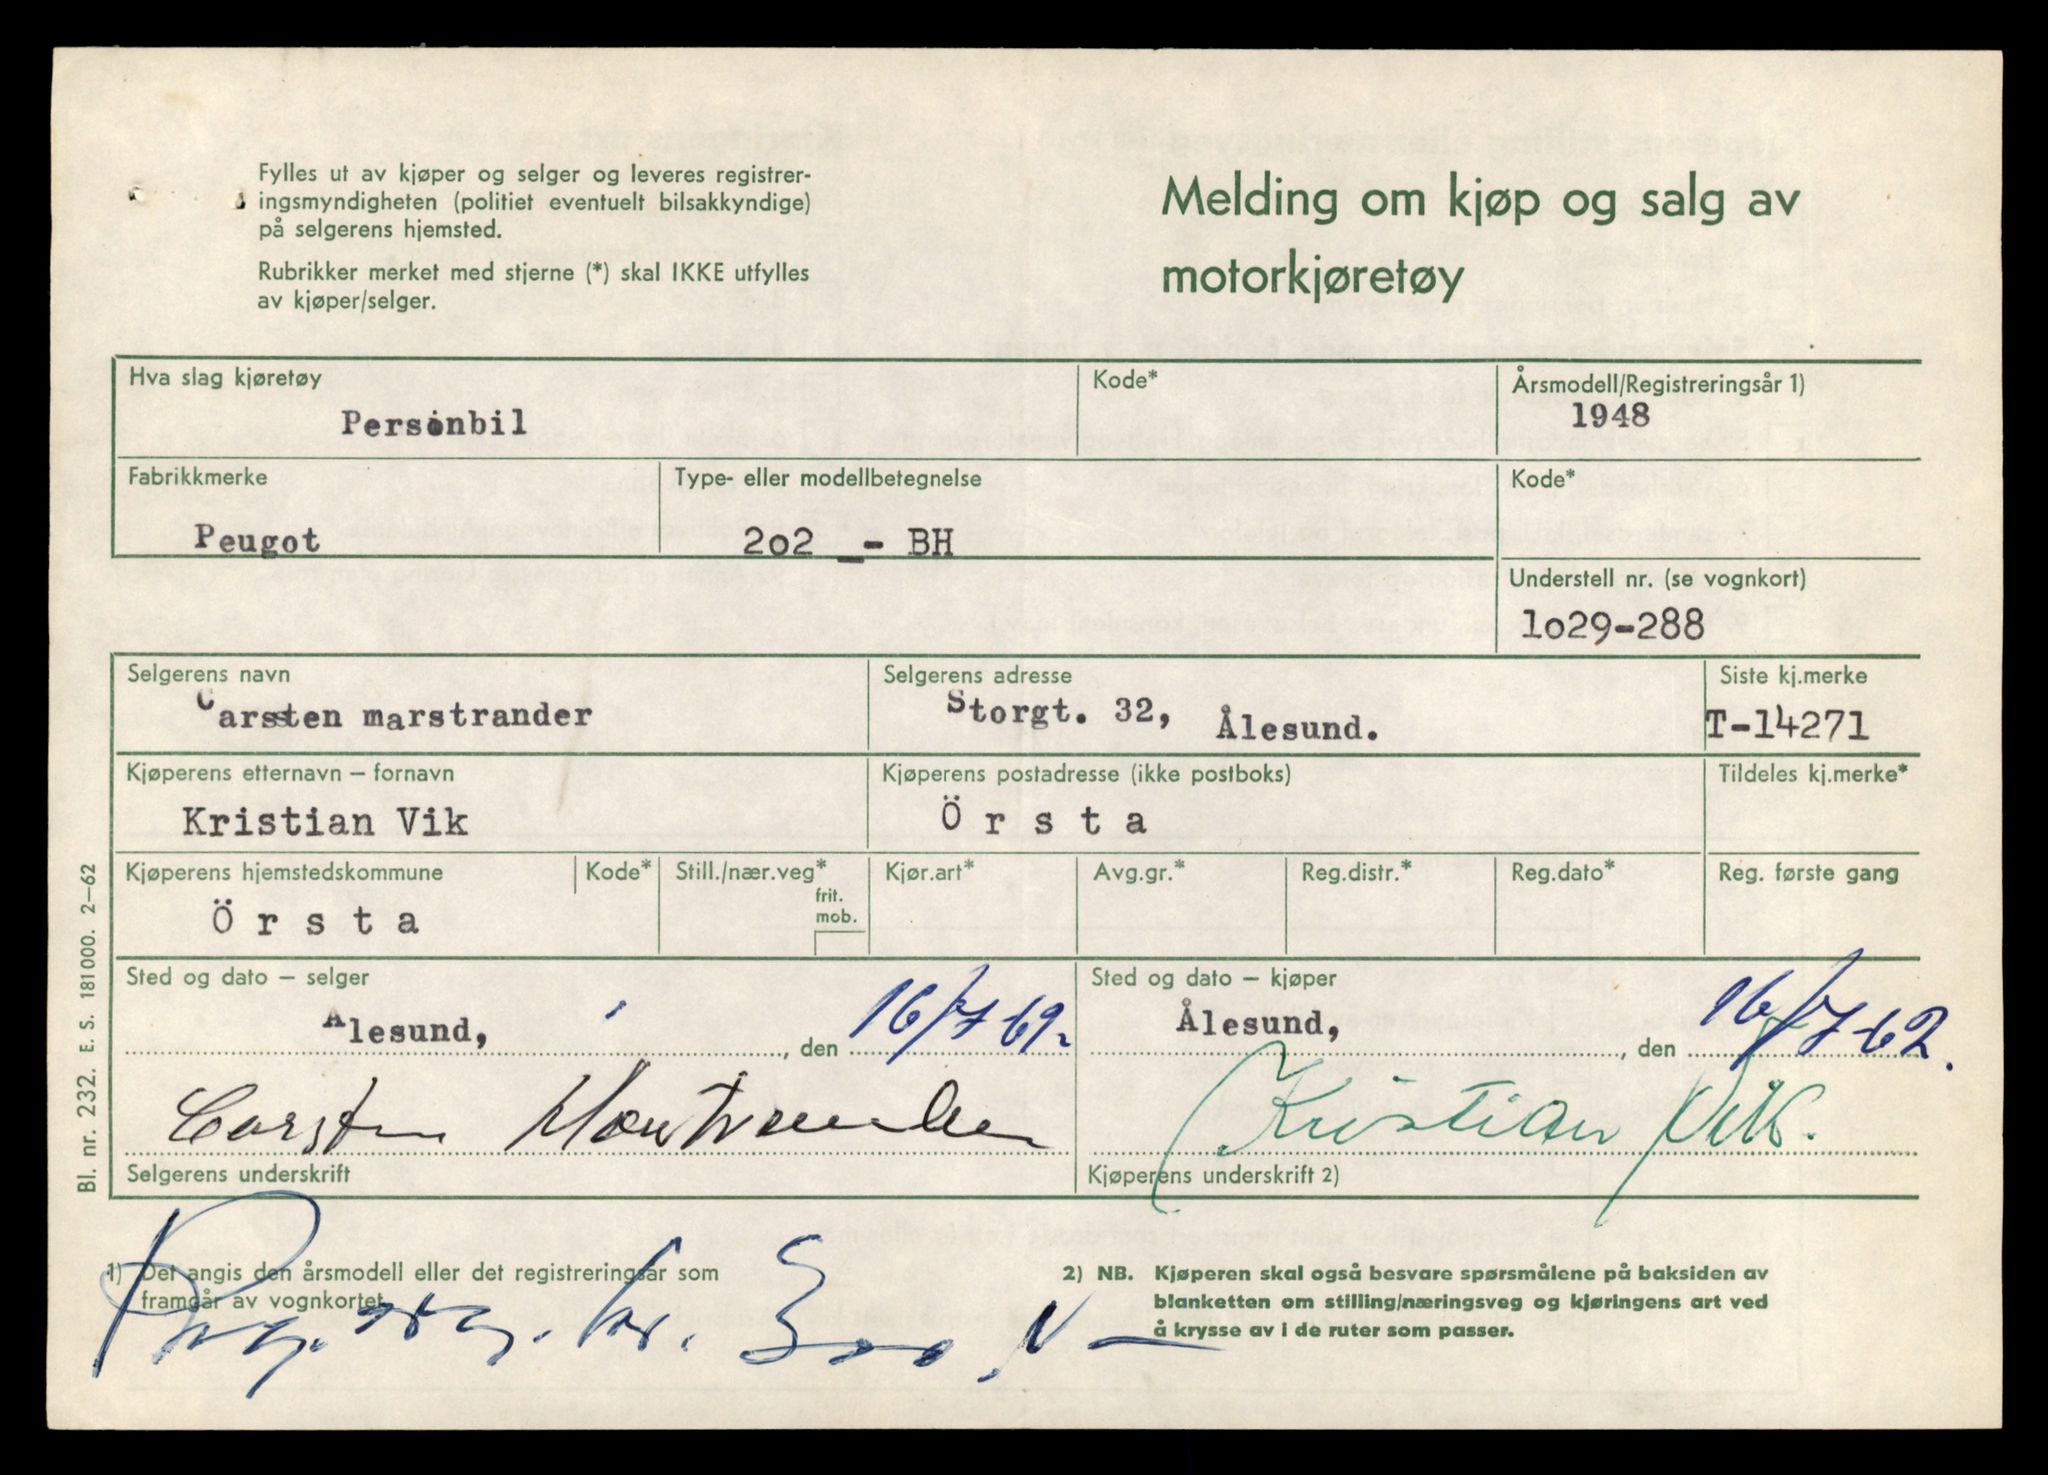 Fylles ut av kjøper og selger og leveres registrer-
ingsmyndigheten (politiet eventuelt bilsakkyndige)
på selgerens hjemsted.
Rubrikker merket med stjerne (*) skal IKKE utfylles
av kjøper/selger.
Melding om kjøp og salg av
motorkjøretøy
Hva slag kjøretøy
Personbil
Kode*
Årsmodell/Registreringsår 1)
1948
Fabrikkmerke
Peugot
Type- eller modellbetegnelse
2o2 _- BH
Kode*
Understell nr. (se vognkort)
1o29-288
Selgerens navn
Carsten marstrander
Selgerens adresse
Storgt. 32, Ålesund.
Siste kj.merke
T-14271
Kjøperens etternavn – fornavn
Kristian Vik
Kjøperens postadresse (ikke postboks)
Ö r s t a
Tildeles kj.merke*
Kjøperens hjemstedskommune
Ö r s t a
Kode*
Still./nær.veg*
frit.
mob.
Kjør.art*
Avg.gr.*
Reg.distr.*
Reg.dato*
Reg. første gang
Sted og dato – selger
Ålesund, , den 16/7-62
Carsten Marstrander
Selgerens underskrift
Sted og dato – kjøper
Ålesund, , den 16/7-62.
Kristian Vik.
Kjøperens underskrift 2)
1) Det angis den årsmodell eller det registreringsår som
framgår av vognkortet
2) NB. Kjøperen skal også besvare spørsmålene på baksiden av
blanketten om stilling/næringsveg og kjøringens art ved
å krysse av i de ruter som passer.
kr. 300,
Bl. nr. 232. E. S. 181000. 2–62